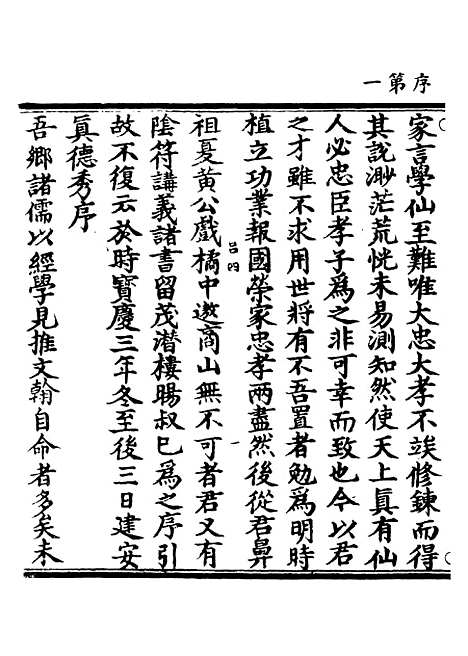 序第一
家言學仙至難唯大忠大孝不竢修鍊而得
其說渺茫荒恍未易測知然使天上眞有仙
人必忠臣孝子爲之非可幸而致也今以君
之才雖不求用世將有不吾置者勉爲明時
植立功業報國榮家忠孝兩盡然後從君鼻
呂四
一
祖憂黃公戲橘中遨商山無不可者君又有
陰符講義諸書留茂潛樓暘叔已爲之序引
故不復云於時寶慶三年冬至後三日建安
眞德秀序
吾鄉諸儒以經學見推文翰自命者多矣未